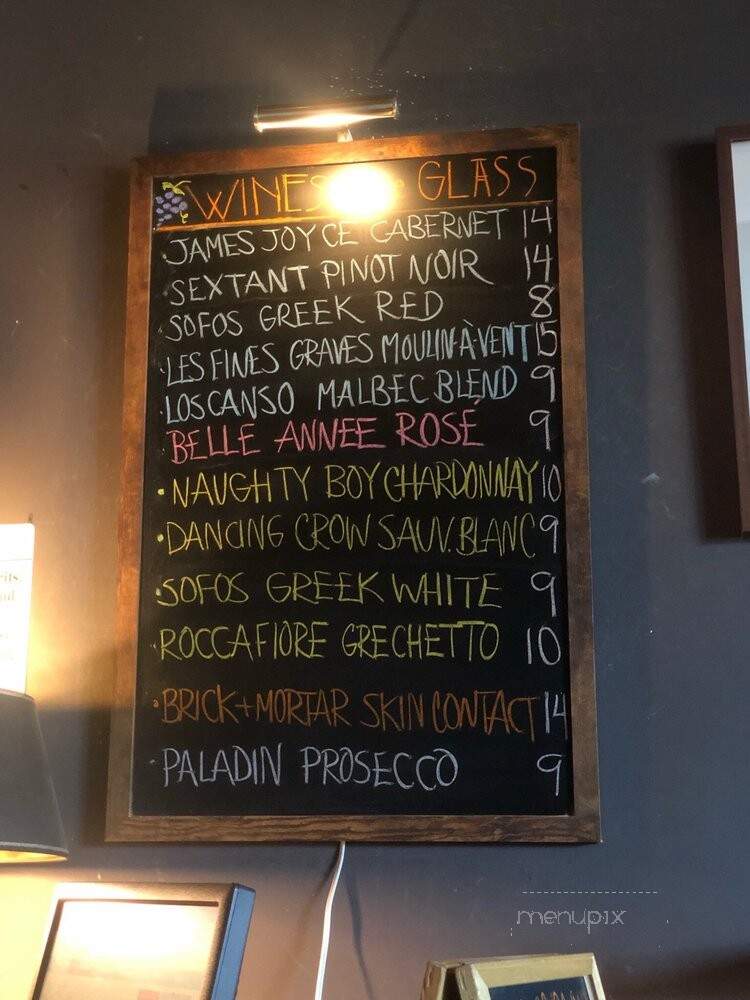 WINES GLASS
JAMES JOYCE CABERNET 14
SEXTANT PINOT NOIR 14
SOFOS GREEK RED 8
LES FINES GRAVES MOULIN-À-VENT 15
LOSCANSO MALBEC BLEND 9
BELLE ANNEE ROSÉ 9
• NAUGHTY BOY CHARDONNAY 10
• DANCING CROW SAUV. BLANC 9
• SOFOS GREEK WHITE 9
• ROCCAFIORE GRECHETTO 10
• BRICK+MORTAR SKIN CONTACT 14
• PALADIN PROSECCO 9
menupix